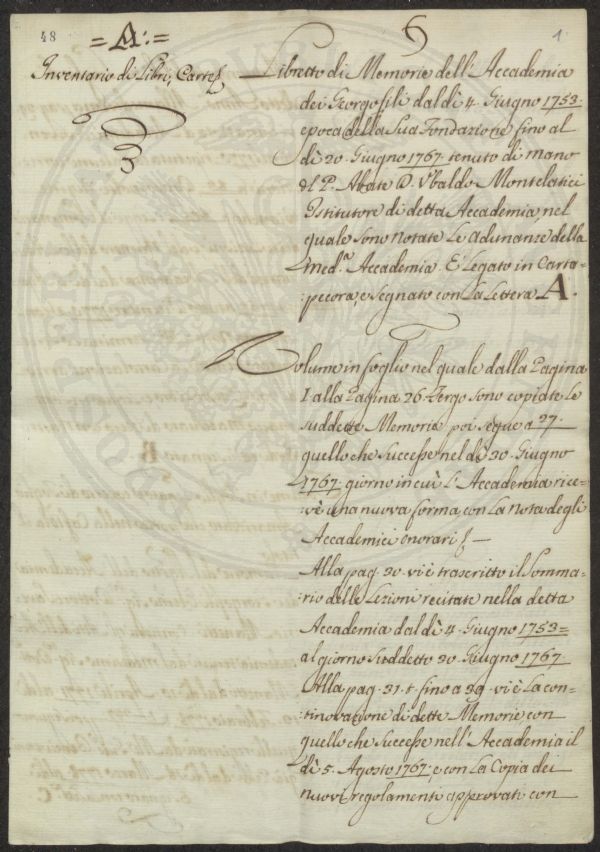 48
= A: =
Inventario di Libri, Carte
1
Libretto di Memorie dell'Accademia
dei Georgofili dal dì 4. Giugno 1753.
epoca della Sua Fondazione fino al
dì 20. Giugno 1767. tenuto di mano
del P. Abate D. Ubaldo Montelatici
Istitutore di detta Accademia, nel
quale sono notate Le Adunanze della
med.ª Accademia. E' Legato in Carta=
:pecora, e segnato con La Lettera A.
Volume in foglio nel quale dalla Pagina
I alla Pagina 26. tergo sono copiate Le
suddette Memorie poi segue a 27.
quello che successe nel dì 20. Giugno
1767. giorno in cui L'Accademia rice=
:vè una nuova forma con La nota degli
Accademici onorari
Alla pag. 30. vi è trascritto il Somma=
:rio delle Lezioni recitate nella detta
Accademia dal dì 4. Giugno 1753=
al giorno suddetto 20. Giugno 1767.
Alla pag. 31. t. fino a 39. vi è La con=
:tinovazione di dette Memorie, con
quello che successe nell'Accademia il
dì 5. Agosto 1767. e con La Copia dei
nuovi regolamenti approvati con